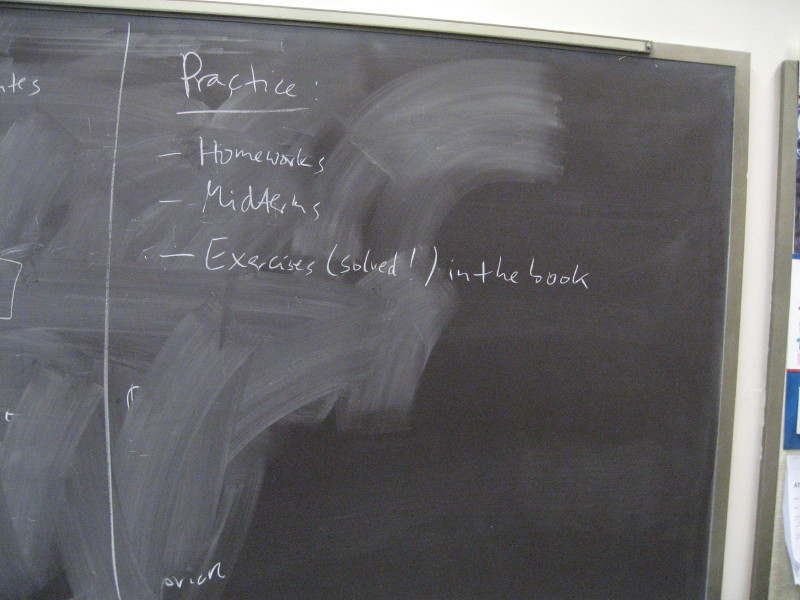 Practice:
- Homeworks
- Midterms
- Exercises (solved!) in the book